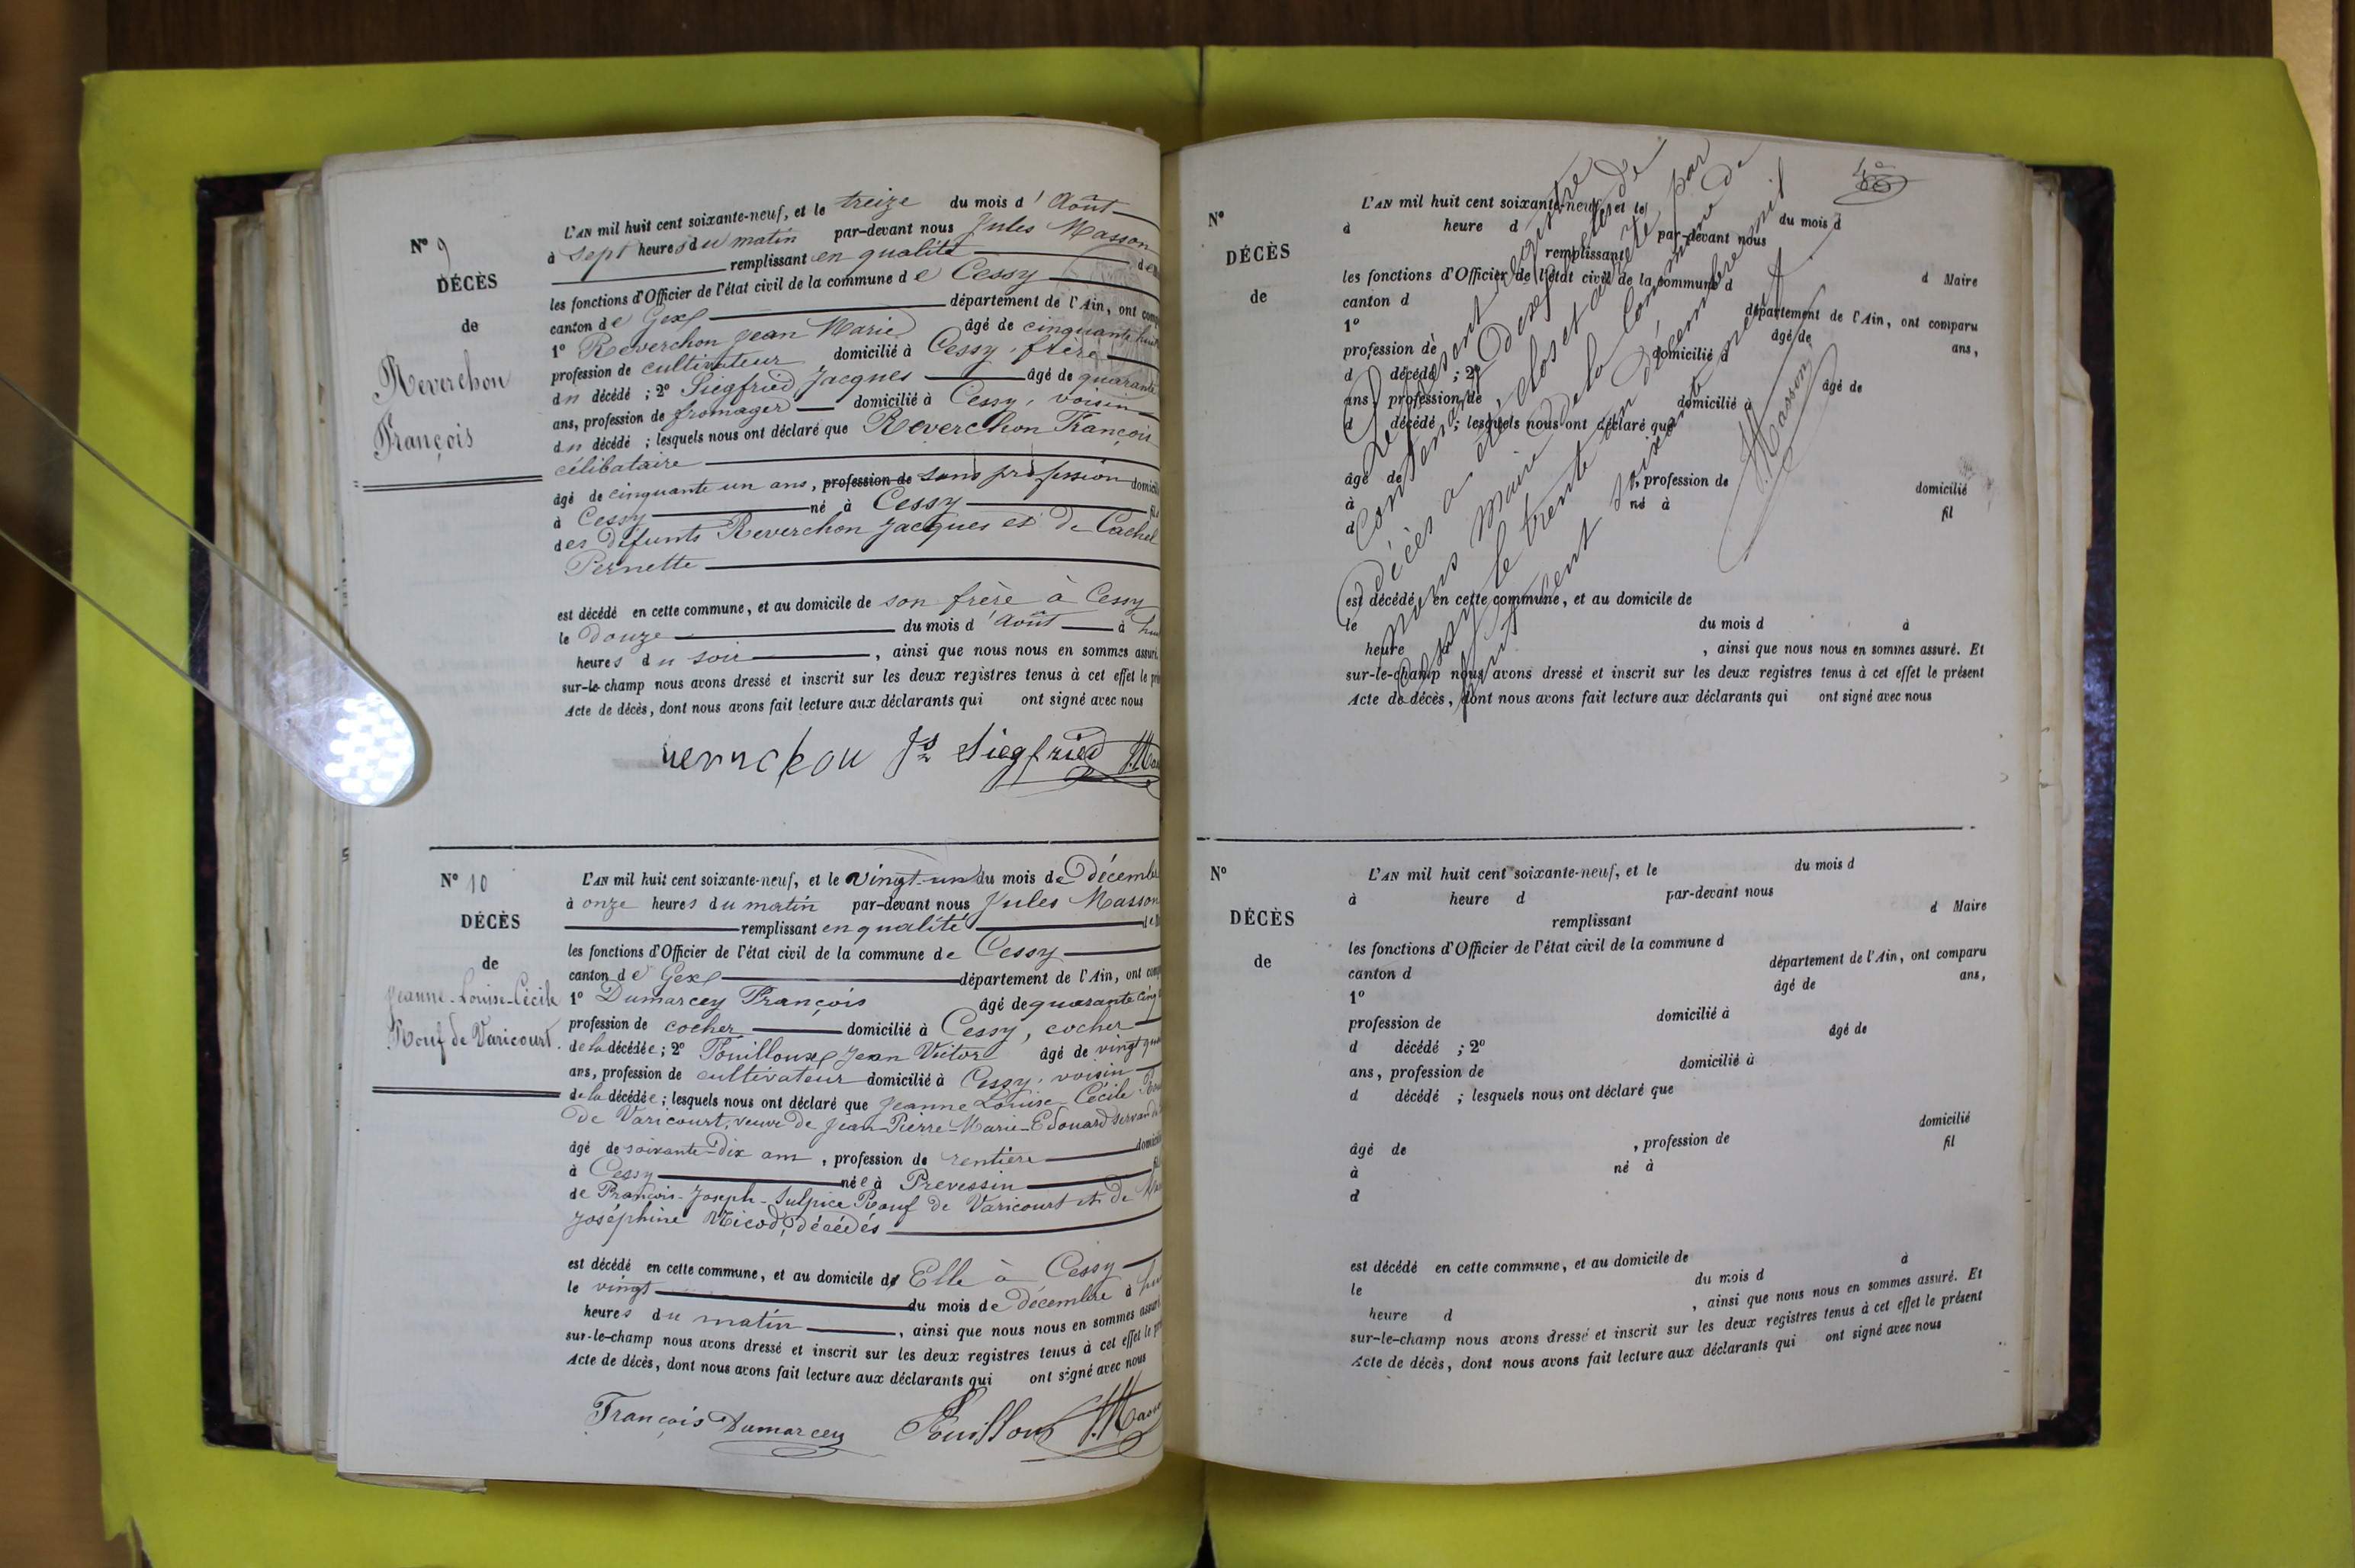 N° 9
DÉCÈS
de
Reverchon
François
L'AN mil huit cent soixante-neuf, et le treize du mois d'Août
à sept heures du matin par-devant nous Jules Masson
remplissant en qualité de
les fonctions d'Officier de l'état civil de la commune de Cessy
canton de Gex département de l'Ain, ont
1° Reverchon Jean Marie âgé de cinquante huit
profession de cultivateur domicilié à Cessy, frère
du décédé ; 2° Siegfried Jacques âgé de quarante
ans, profession de fromager domicilié à Cessy, voisin
du décédé ; lesquels nous ont déclaré que Reverchon François
célibataire
âgé de cinquante un ans, profession de sans profession
à Cessy né à Cessy
des défunts Reverchon Jacques et de Cachel
Pernette
est décédé en cette commune, et au domicile de son frère à Cessy
le douze du mois d'Août à
heures du soir, ainsi que nous nous en sommes
sur-le-champ nous avons dressé et inscrit sur les deux registres tenus à cet effet le
Acte de décès, dont nous avons fait lecture aux déclarants qui ont signé avec nous
Siegfried
N° 10
DÉCÈS
de
Jeanne-Louise-Cécile
Rouf de Varicourt.
L'AN mil huit cent soixante-neuf, et le vingt-un du mois de Décembre
à onze heures du matin par-devant nous Jules Masson
remplissant en qualité de
les fonctions d'Officier de l'état civil de la commune de Cessy
canton de Gex département de l'Ain, ont
1° Dumarcey François âgé de quarante cinq
profession de cocher domicilié à Cessy, cocher
de la décédée ; 2° Pouilloux Jean Victor âgé de vingt
ans, profession de cultivateur domicilié à Cessy, voisin
de la décédée ; lesquels nous ont déclaré que Jeanne Louise-Cécile
de Varicourt, veuve de Jean-Pierre-Marie-Edouard
âgé de soixante-Dix ans, profession de rentière
à Cessy née à Prevessin
de François-Joseph-Sulpice Rouf de Varicourt et de
Joséphine Nicod, décédés
est décédé en cette commune, et au domicile d Elle à Cessy
le vingt du mois de décembre à
heures du matin, ainsi que nous nous en sommes
sur-le-champ nous avons dressé et inscrit sur les deux registres tenus à cet effet le
Acte de décès, dont nous avons fait lecture aux déclarants qui ont signé avec nous
François Dumarcey Pouilloux
N°
DÉCÈS
de
L'AN mil huit cent soixante-neuf, et le du mois d
à heure d par-devant nous
remplissant d Maire
les fonctions d'Officier de l'état civil de la commune d
canton d département de l'Ain, ont comparu
1° âgé de ans,
profession de domicilié à
d décédé ; 2° âgé de
ans, profession de domicilié à
d décédé ; lesquels nous ont déclaré que
âgé de , profession de domicilié
à né à fil
d
est décédé en cette commune, et au domicile de
le du mois d à
heure d , ainsi que nous nous en sommes assuré. Et
sur-le-champ nous avons dressé et inscrit sur les deux registres tenus à cet effet le présent
Acte de décès, dont nous avons fait lecture aux déclarants qui ont signé avec nous
Le présent registre
contenant Dix actes de
Décès a été clos et arrêté par
nous Maire de la commune de
Cessy le trente un décembre mil
huit cent soixante neuf.
J. Masson
N°
DÉCÈS
de
L'AN mil huit cent soixante-neuf, et le du mois d
à heure d par-devant nous
remplissant d Maire
les fonctions d'Officier de l'état civil de la commune d
canton d département de l'Ain, ont comparu
1° âgé de ans,
profession de domicilié à
d décédé ; 2° âgé de
ans, profession de domicilié à
d décédé ; lesquels nous ont déclaré que
âgé de , profession de domicilié
à né à fil
d
est décédé en cette commune, et au domicile de
le du mois d à
heure d , ainsi que nous nous en sommes assuré. Et
sur-le-champ nous avons dressé et inscrit sur les deux registres tenus à cet effet le présent
Acte de décès, dont nous avons fait lecture aux déclarants qui ont signé avec nous